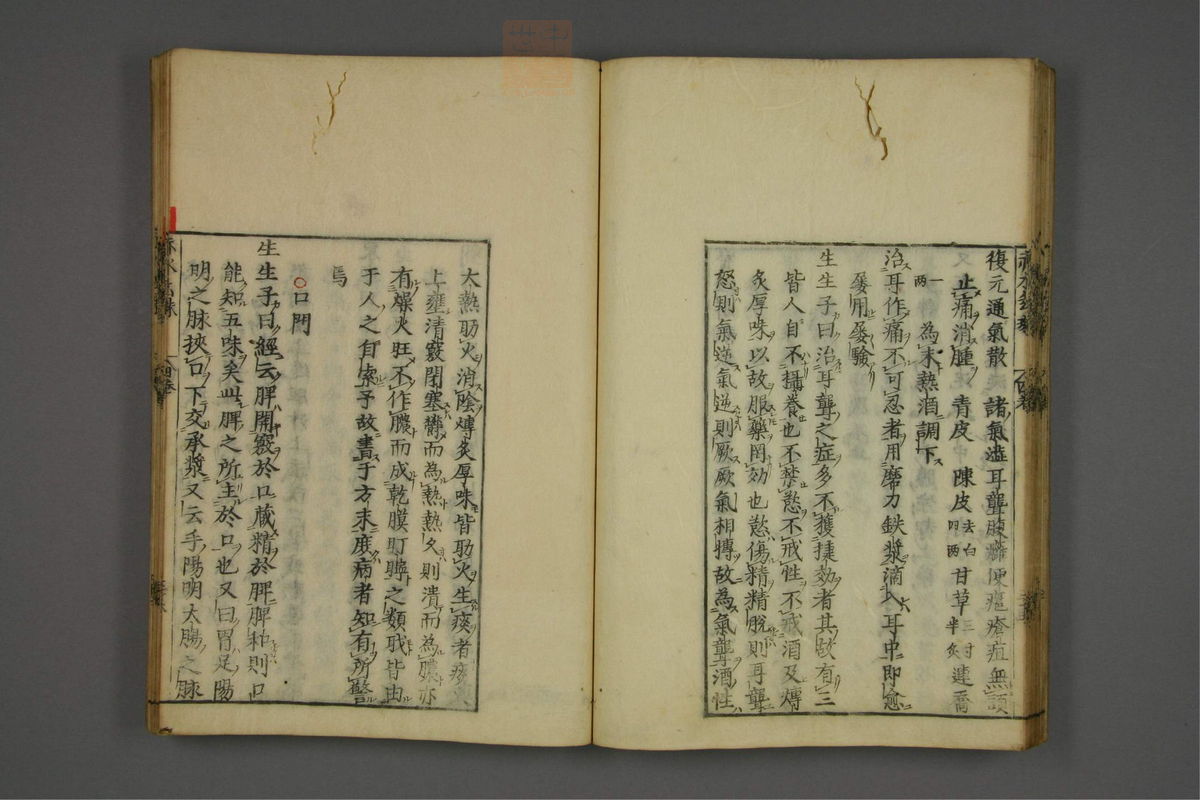 復元通氣散 諸氣澁耳聾腹癰便癰瘡疽無頭
止痛消腫 青皮 陳皮去白四兩 甘草三寸半炙 連喬
一兩 為末熱酒調下
治耳作痛不可忍者用磨刀鉄漿滴入耳中即愈
屡用屡驗
生生子曰治耳聾之症多不獲捷効者其故有三
皆人自不攝養也不禁慾不戒性不戒酒及煿
炙厚味以故服藥罔効也慾傷精精脫則耳聾
怒則氣逆氣逆則厥厥氣相摶故為氣聾酒性
大熱助火消陰煿炙厚味皆助火生痰者痰火
上壅清竅閉塞鬱而為熱熱久則潰而為膿亦
有燥火旺不作膿而成乾膜耵聹之類戝皆由
于人之自索予故書于方末庻病者知有所警
焉
○口門
生生子曰經云脾開竅於口藏精於脾脾和則口
能知五味矣此脾之所主於口也又曰胃足陽
明之脉挾口下交承漿又云手陽明大腸之脉